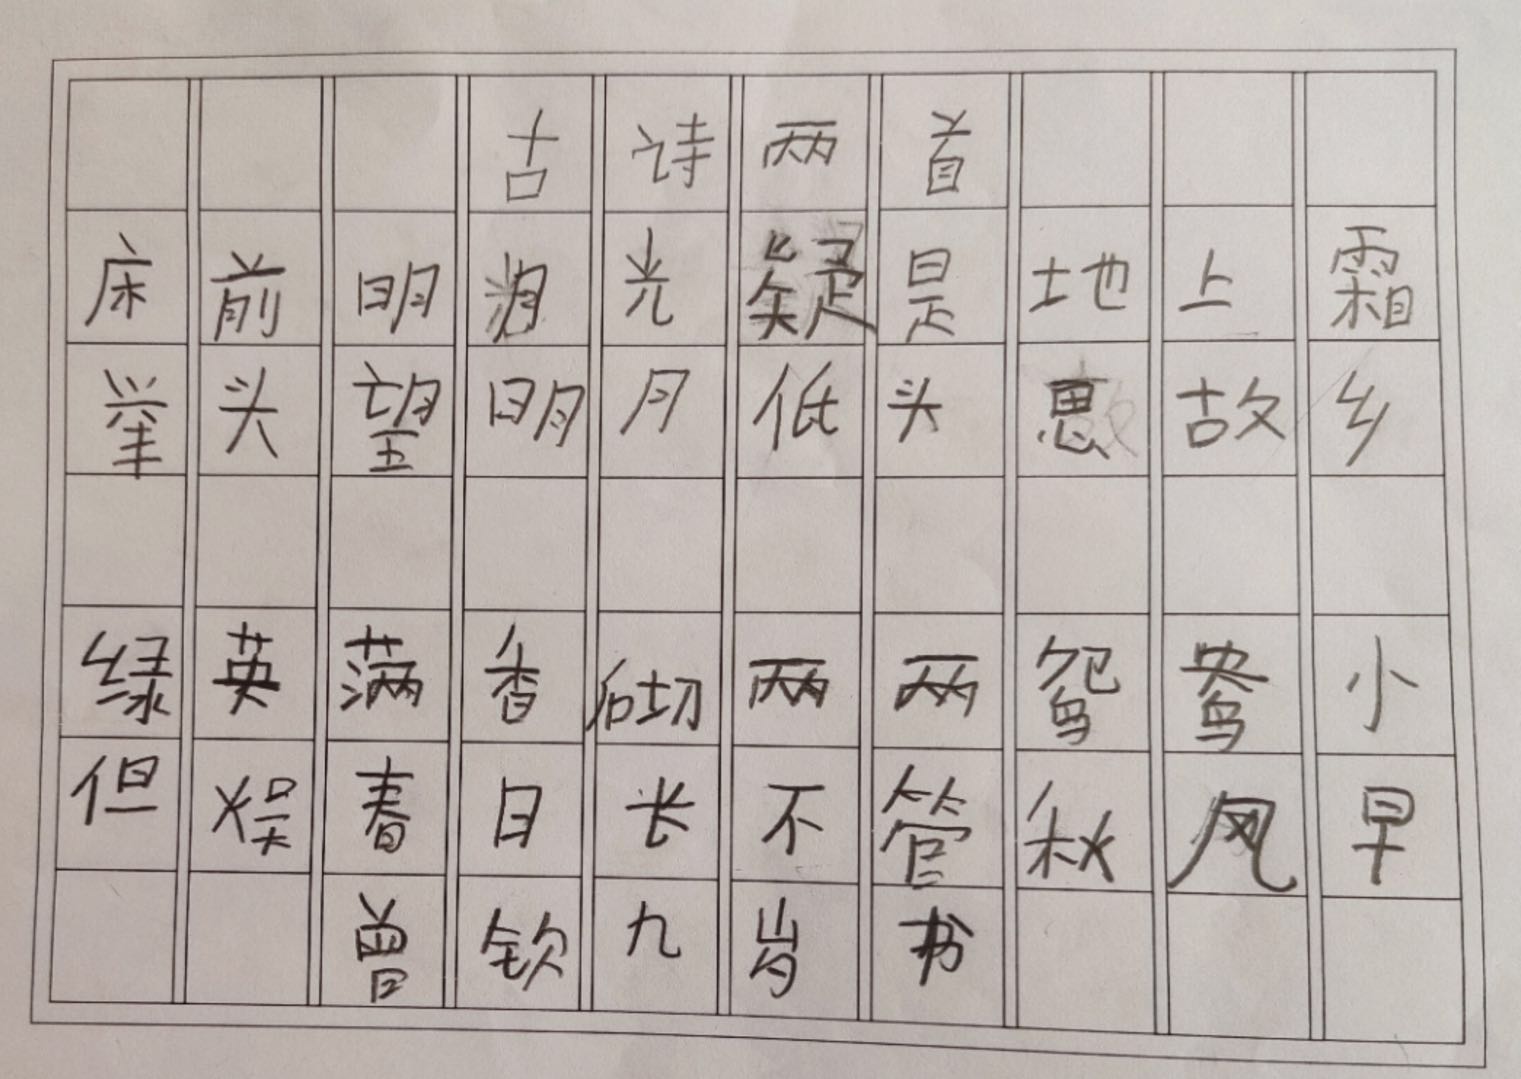 古诗两首
床前明月光疑是地上霜
举头望明月低头思故乡
绿英满香砌两两鸳鸯小
但娱春日长不管秋风早
曾钦九岁书